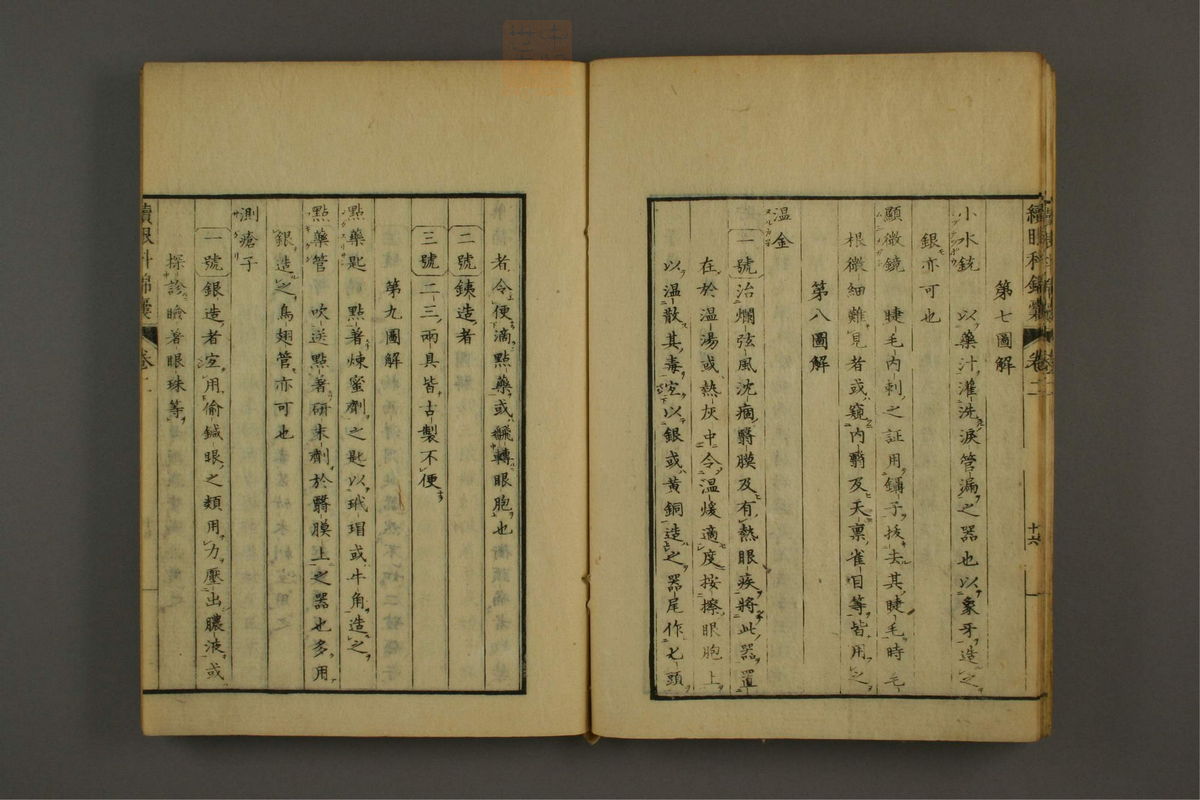 續眼科錦囊 卷二 十六
第七圖解
小水銃 以藥汁灌洗淚管漏之器也以象牙造之
銀亦可也
顯微鏡 睫毛內刺之証用鑷子拔去其睫毛時毛
根微細難見者或窺內翳及天稟雀目等皆用之
第八圖解
溫金
一號 治爛弦風沈痼翳膜及有熱眼疾將此器置
在於溫湯或熱灰中令溫煖適度按擦眼胞上
以溫散其毒宜以銀或黃銅造之器尾作匕頭
者令便滴點藥或飜轉眼胞也
二號 銕造者
三號 二三兩具皆古製不便
第九圖解
點藥匙 點著煉蜜劑之匙以玳瑁或牛角造之
點藥管 吹送點著研末劑於翳膜上之器也多用
銀造之鳥翅管亦可也
測瘡子
一號 銀造者宜用偷鍼眼之類用力壓出膿液或
探診瞼著眼珠等
續眼科錦囊 卷二